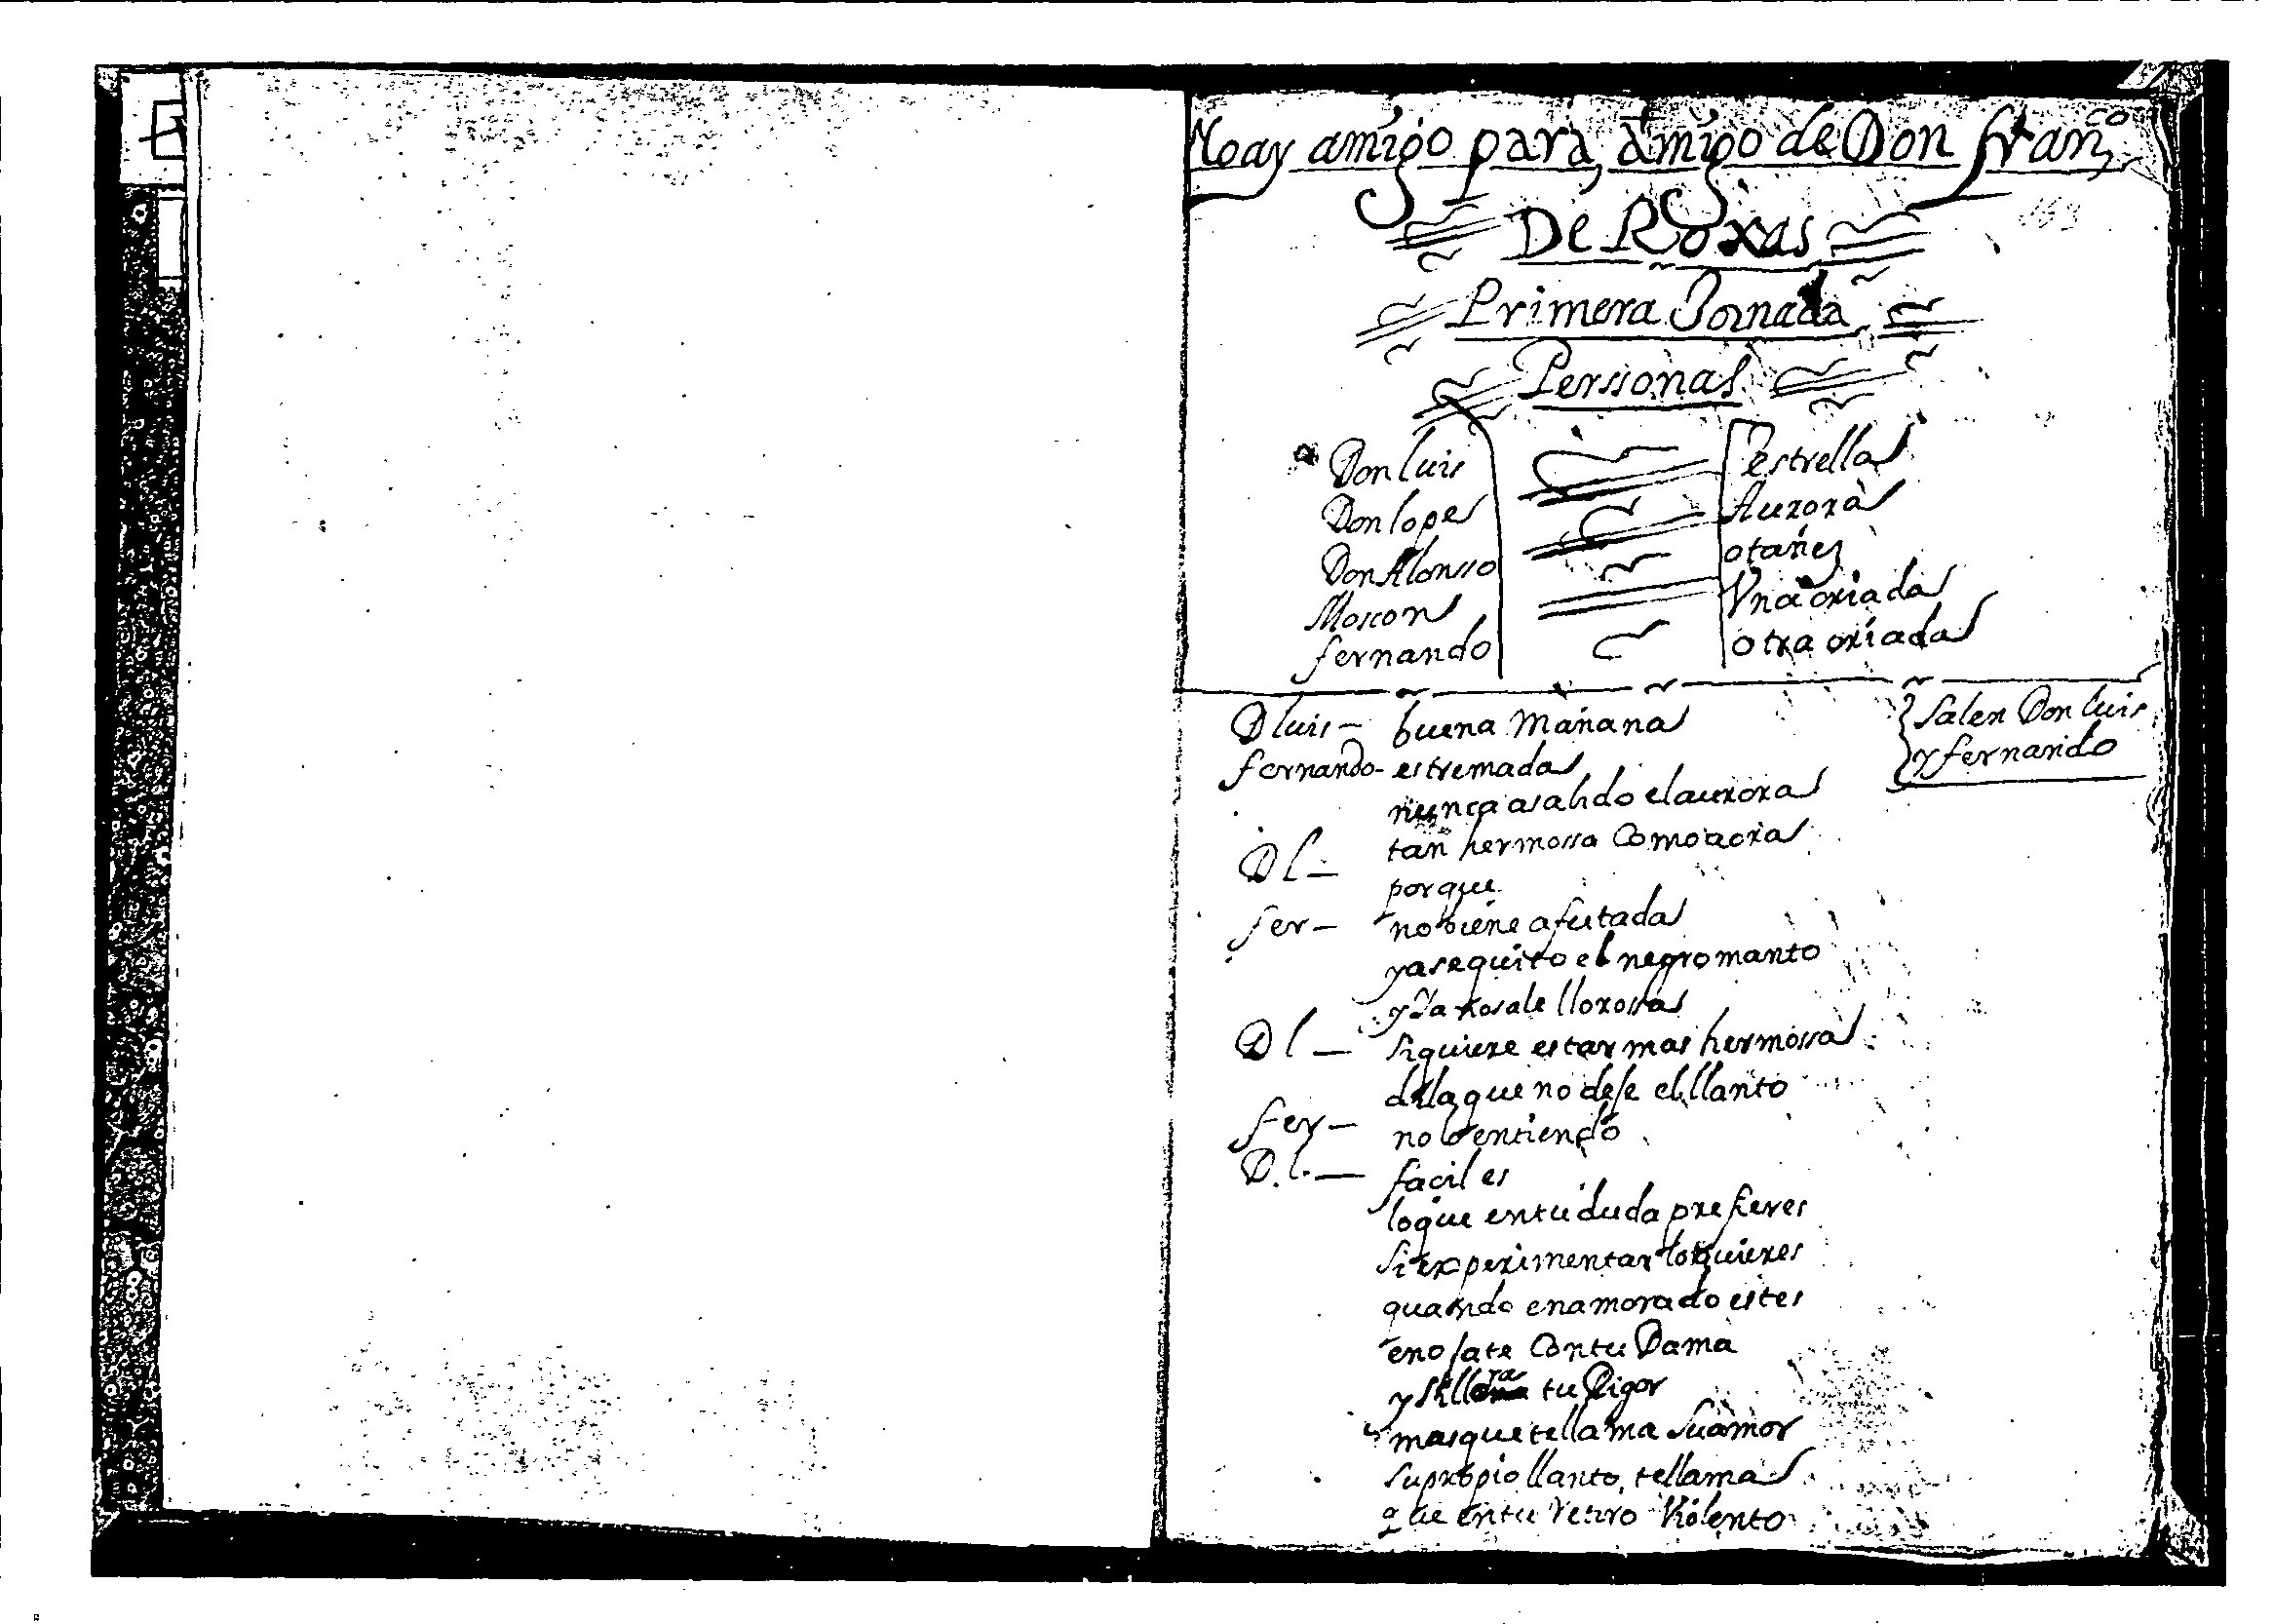 No ay amigo para, amigo de Don fran^co
De Roxas
Primera Jornada
Perssonas
Don luis
Don lope
Don Alonsso
Moscon
fernando
estrella
Aurora
otañez
Vna criada
otra criada
D luis - buena Mañana
Salen Don luis
y fernando
fernando - estremada
nunca a salido el aurora
tan hermossa Como aora
D l - por que
fer - no biene afeitada
ya se quito el negro manto
y Ya nos ale llorossa
D l - si quiere estar mas hermossa
dila que no deje el llanto
fer - no lo entiendo
D. l. - facil es
lo que en tu duda prefieres
si experimentar lo quieres
quando enamorado estes
enojate Con tu Dama
y si llora tu Rigor
mas que te llama su amor
su propio llanto, te llama
que en tu Retiro Violento